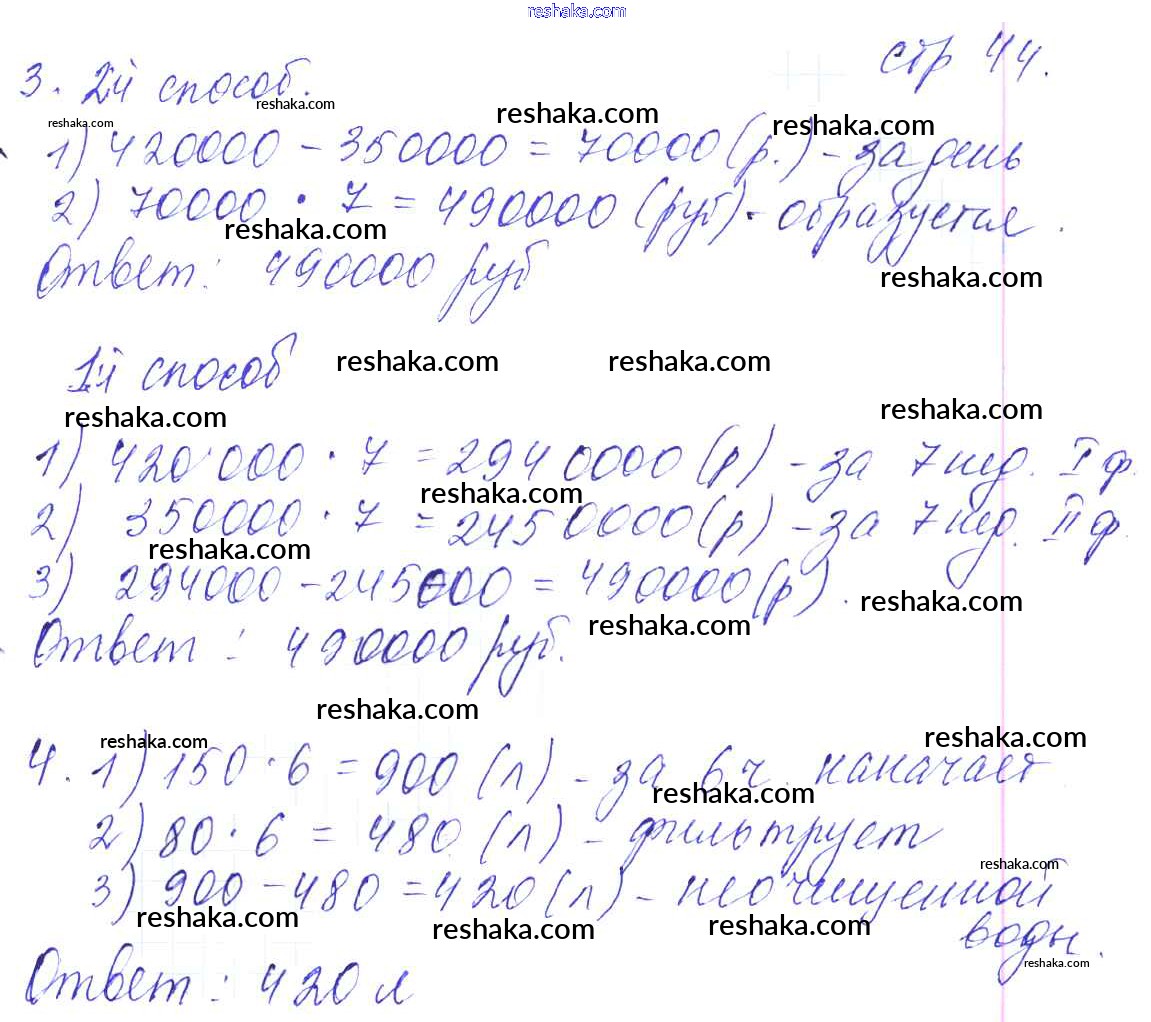 reshaka.com
стр 44.
3. 2й способ.
reshaka.com
reshaka.com
reshaka.com
reshaka.com
1) 420000 - 350000 = 70000 (р.) - за день
2) 70000 · 7 = 490000 (руб) - образуется.
reshaka.com
Ответ: 490000 руб
reshaka.com
1й способ
reshaka.com
reshaka.com
reshaka.com
reshaka.com
1) 420 000 · 7 = 2940000 (р) - за 7 нед. I ф.
reshaka.com
2) 350000 · 7 = 2450000 (р) - за 7 нед. II ф.
reshaka.com
3) 294000 - 245000 = 490000 (р).
reshaka.com
Ответ: 490000 руб.
reshaka.com
reshaka.com
reshaka.com
reshaka.com
4. 1) 150 · 6 = 900 (л) - за 6 ч. накачает
reshaka.com
2) 80 · 6 = 480 (л) - фильтрует
reshaka.com
3) 900 - 480 = 420 (л) - неочищенной
reshaka.com
reshaka.com
reshaka.com
воды.
reshaka.com
Ответ: 420 л